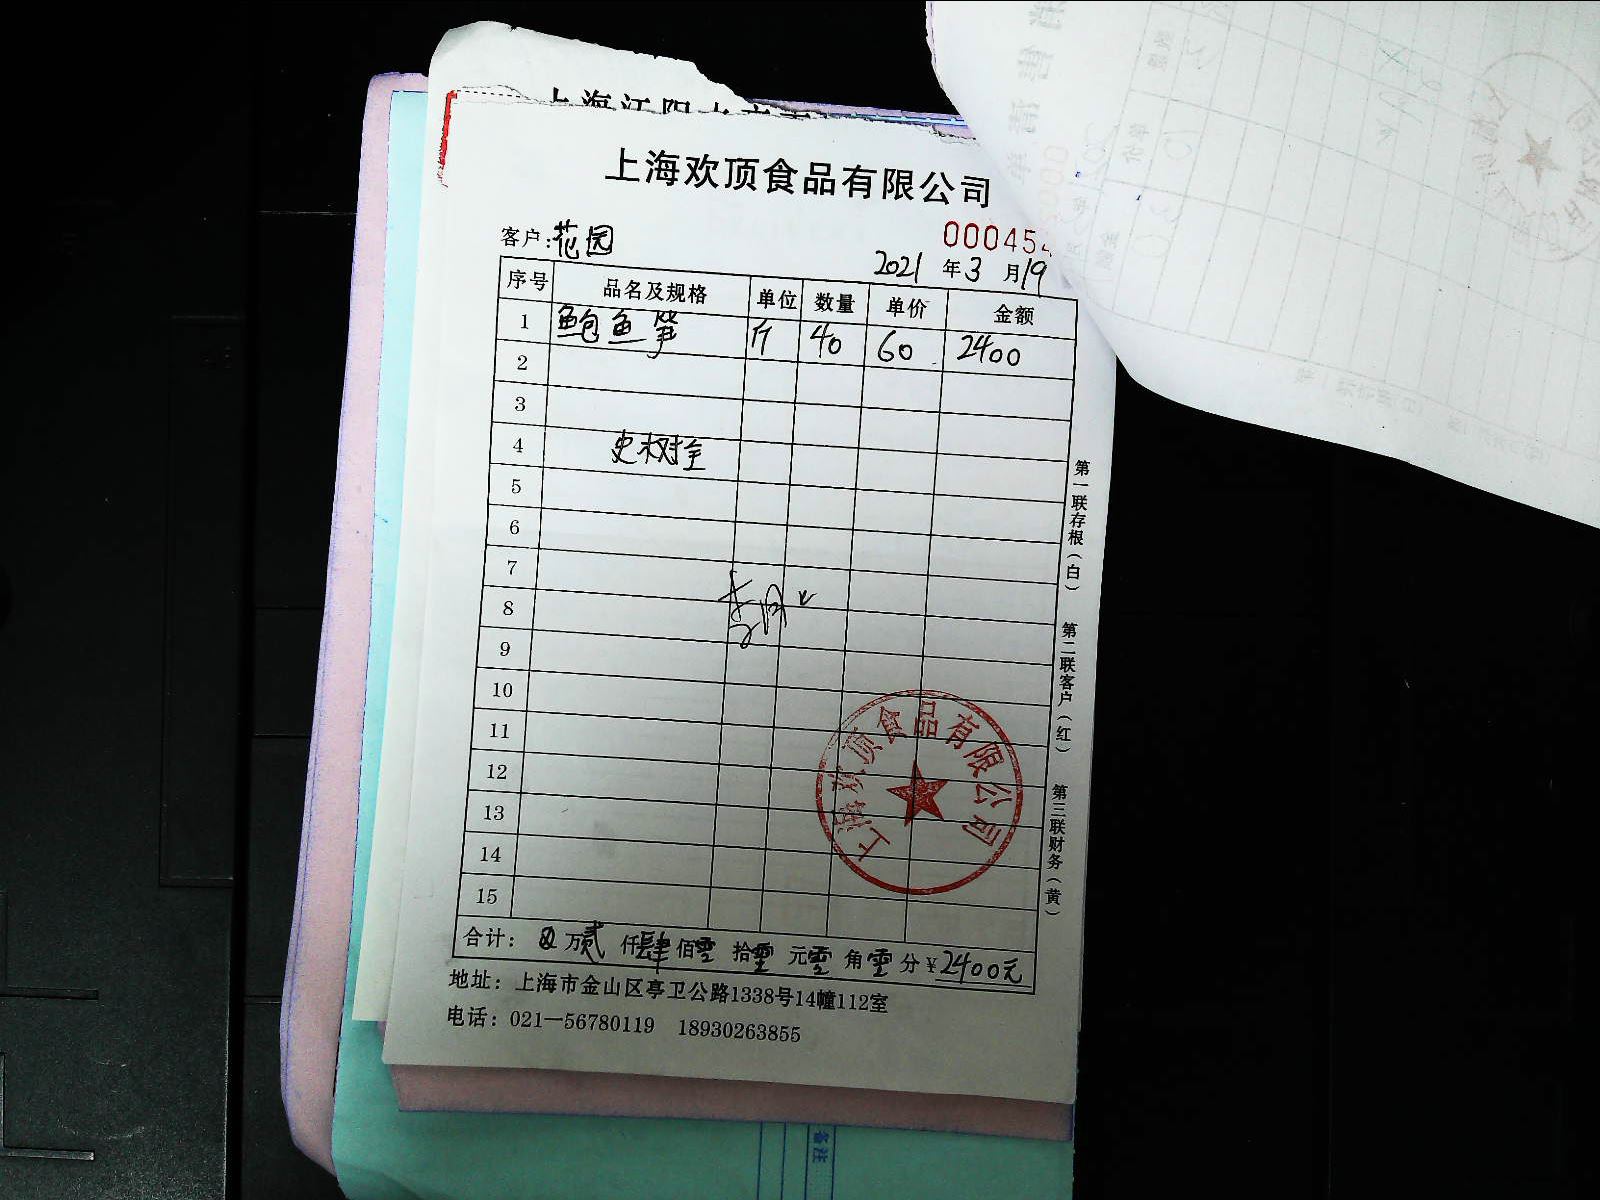 上海欢顶食品有限公司
000454
客户:花园
2021 年 3 月 19
序号 品名及规格 单位 数量 单价 金额
1 鲍鱼笋 斤 40 60 2400
2
3
4 史树拴
5
6
7
8
9
10
11
12
13
14
15
上海欢顶食品有限公司
合计: 万 贰 仟 肆 佰 零 拾 零 元 零 角 零 分 ¥2400元
地址: 上海市金山区亭卫公路1338号14幢112室
电话: 021—56780119 18930263855
第一联存根(白) 第二联客户(红) 第三联财务(黄)
备注